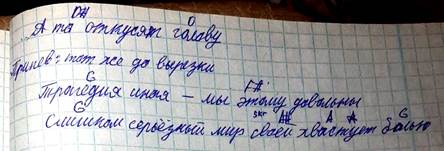 D# G
А та откусят голову
Припев: тот же до вырезки
G F#
Трагедия иная – мы этому довольны
G A# A A G
Слишком серьёзный мир своей хвастует болью